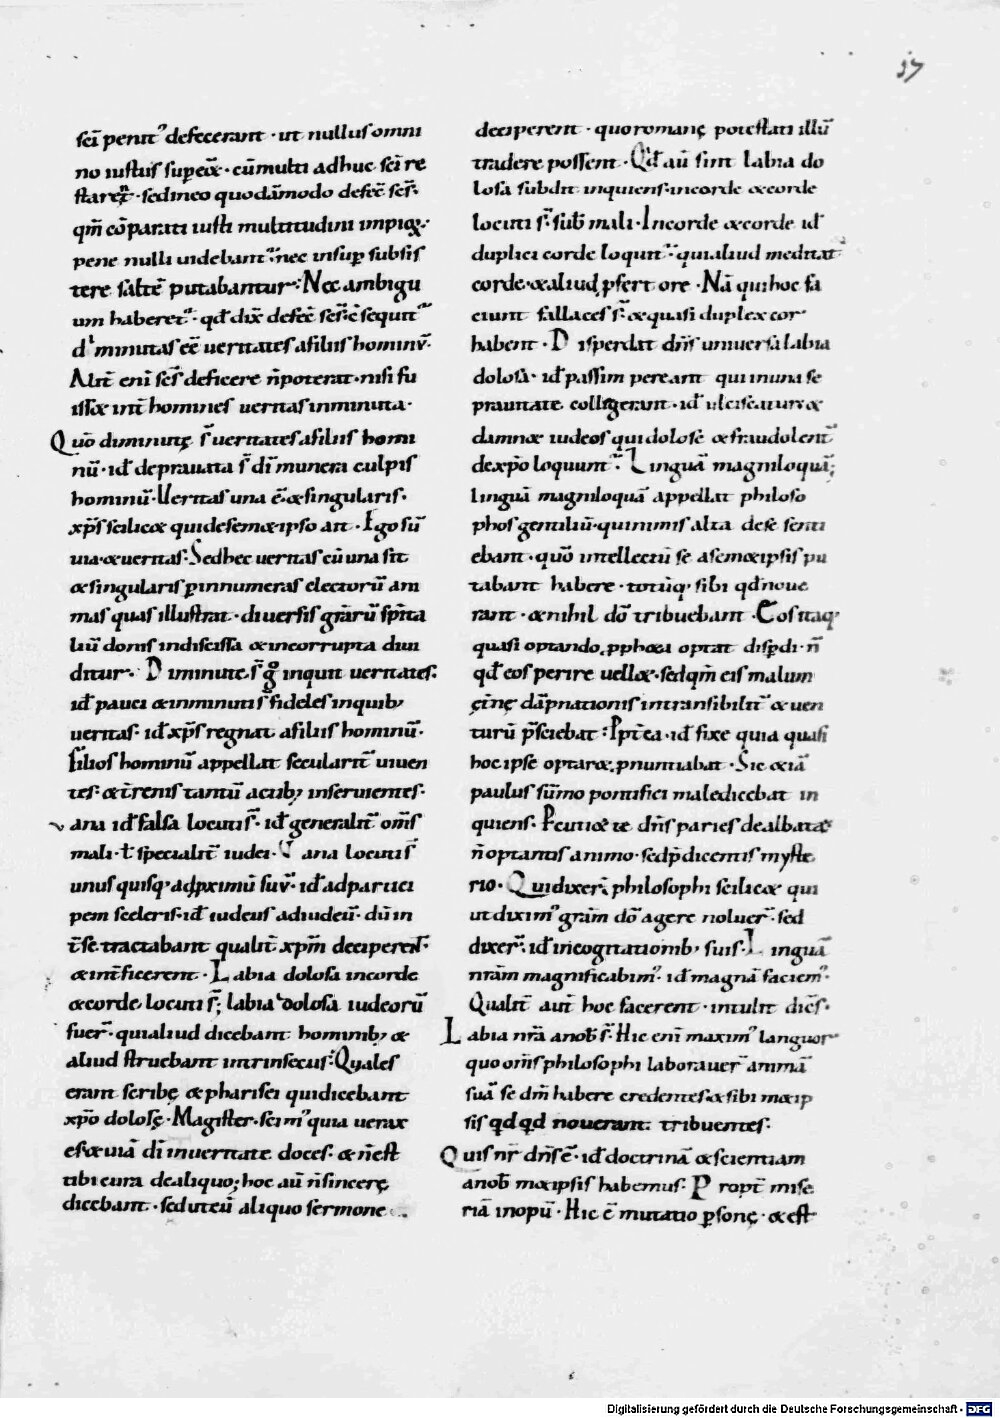 37
scī penit᷒ defecerant · ut nullus omni
no iustus suꝑeēt · cū multi adhuc scī re
starēt · sed in eo quodāmodo defeē scs̄ ·
qm̄ cōparati iusti multitudini impioꝝ ·
pene nulli uidebant᷑ · nec insuꝑ subsis
tere saltē putabantur · Nec ambigu
um haberet᷑ · qđ dix̄ defeē scs̄ · ē seqūt᷑
diminutas eē ueritates a filiis hominū ·
Alit̄ eni scs̄ deficere n̄ poterat · nisi fu
isset int̄ homines ueritas inminuta ·
Quō diminutę s̄ ueritates a filiis homi
nū · id ē deprauata s̄ dī munera culpis
hominū · Ueritas una ē · & singularis ·
xp̄s scilicet qui de semetipso ait · Ego sū
uia & ueritas · Sed hec ueritas cū una sit
& singularis ꝑ innumeras electorū ani
mas quas illustrat · diuersis gr̄arū sp̄ita
liū donis indiscissa & incorrupta diui
ditur · Diminute s̄ g̊ inquit ueritates ·
id ē pauci & inminuti s̄ fideles in quib;
ueritas · id ē xp̄s regnat a filiis hominū ·
Filios hominū appellat seculariť uiuen
tes · & t̄renis tantū actib; inseruientes ·
Vana id ē falsa locuti s̄ · id ē generaliť om̄s
mali · ł specialiť iudei · Vana locuti s̄
unus quisq; ad ꝓximū suū · id ē ad partici
pem sceleris · id ē iudeus ad iudeū · dū in
t̄ se tractabant qualiť xp̄m deciperent ·
& int̄ficerent · Labia dolosa in corde
& corde locuti s̄; labia dolosa iudeorū
fuer̄ · qui aliud dicebant hominib; &
aliud struebant intrinsecus · Quales
erant scribę & pharisei qui dicebant
xp̄o dolosę · Magister · scim᷒ quia uerax
es & uiā dī in ueritate doces · & n̄ est
tibi cura de aliquo; hoc aū n̄ sincerę
dicebant · sed ut eū aliquo sermone
deciperent · quo romanę potestati illū
tradere possent · Qđ aū sint labia do
losa subdit inquiens · in corde & corde
locuti s̄ · sub mali · In corde & corde id ē
duplici corde loqunt᷑ · qui aliud meditat᷑
corde · & aliud ꝓfert ore · Nā qui hoc fa
ciunt fallaces s̄ · & quasi duplex cor
habent · Disperdat dn̄s uniuersa labia
dolosa · id ē passim pereant qui in una se
prauitate colligerant · id ē ulciscatur &
damnet iudeos qui dolosē & fraudolent᷑
de xp̄o loqunt᷑ · Linguā magniloquā;
linguā magniloquā appellat philoso
phos gentiliū · qui nimis alta de se senti
ebant · quō intellectū se a semetipsis pu
tabant habere · totūq; sibi qđ noue
rant · & nihil dō tribuebant · Eos itaq;
quasi optando ꝓpheta optat disꝑdi · n̄
qđ eos perire uellet · sed qm̄ eis malum
ętn̄ę dāpnationis intransibiliť & uen
turū p̄sciebat · Ipt̄ea · id ē fixe quia quasi
hoc ipse optaret ꝓnuntiabat · Sic & iā
paulus sūmo pontifici maledicebat in
quiens · Percutiet te dn̄s paries dealbatæ
n̄ optantis animo · sed p̄dicentis myste
rio · Qui dixer̄ philosophi scilicet qui
ut dixim᷒ gr̄am dō agere noluer̄ · sed
dixer̄ · id ē in cogitationib; suis · Linguā
nr̄am magnificabim᷒ · id ē magnā faciem᷒ ·
Qualiť aut̄ hoc facerent · intulit diēs ·
Labia nr̄a a nob s̄ · Hic eni maxim᷒ languor
quo om̄s philosophi laborauer̄ animā
suā se dm̄ habere credentes · & sibi metip
sis qđ qđ nouerant tribuentes ·
Quis nr̄ dn̄s ē · id ē doctrinā & scientiam
a nob metipsis habemus · Propt̄ mise
riā inopū · Hic ē mutatio ꝑsonę · & est
Digitalisierung gefördert durch die Deutsche Forschungsgemeinschaft - DFG